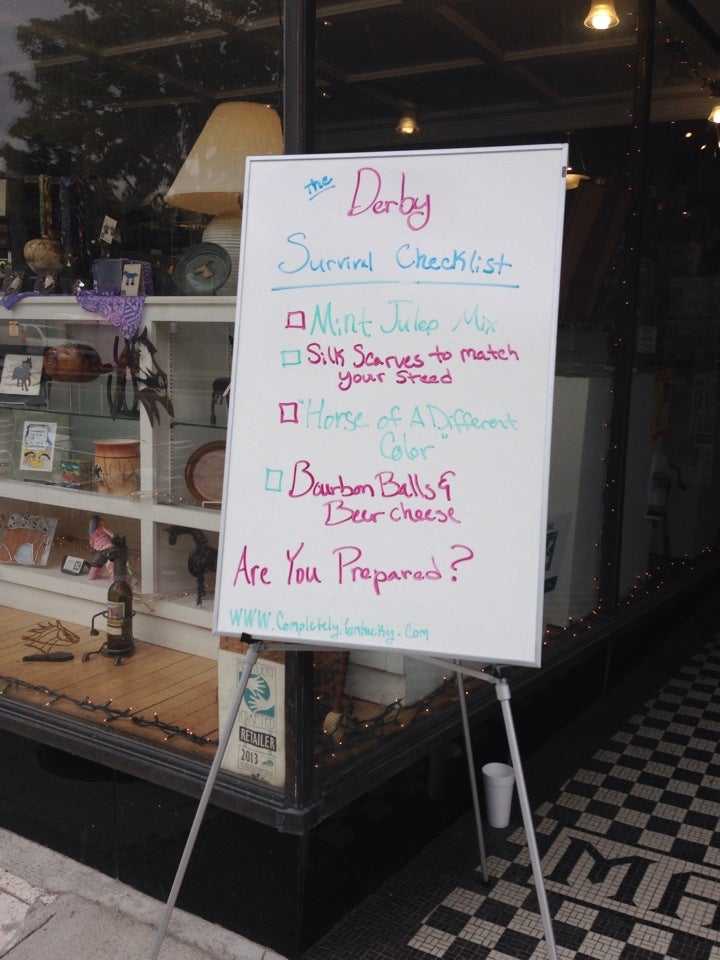 the Derby
Survival Checklist
Mint Julep Mix
Silk Scarves to match
your Steed
"Horse of A Different
Color"
Bourbon Balls &
Beer cheese
Are You Prepared?
WWW.CompletelyKentucky.Com
CRAFTED
RETAILER
2013
MA